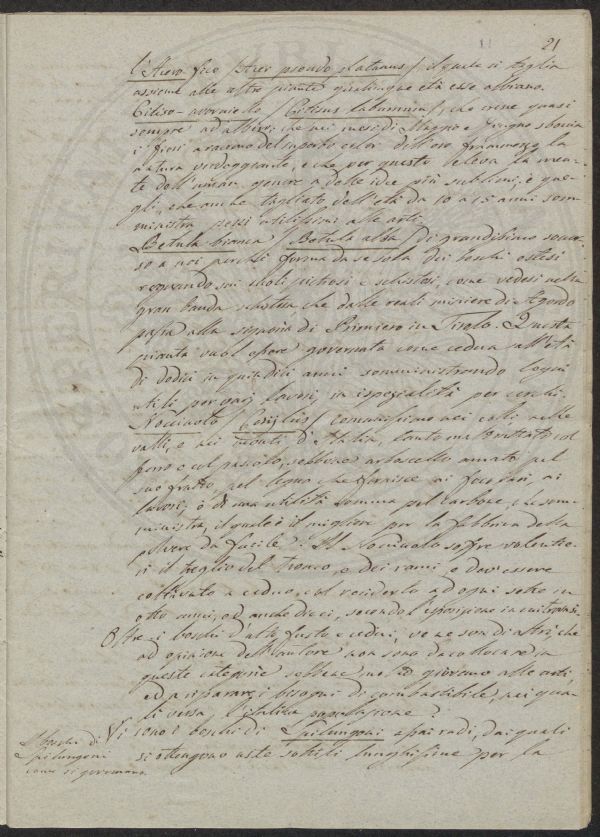 21
l'Acero fico /Acer pseudo platanus/ il quale si taglia
assieme alle altre piante qualunque età esse abbiano.
Citiso-avorniello /Citisus laburnum/, che cresce quasi
sempre ad albero; che nei mesi di Maggio e Giugno sboccia
i fiori a racemo del superbo color dell'oro frammezzo la
natura verdeggiante, e che per questo eleva la men-
te dell'uman genere a delle idee più sublimi, e que-
gli, che anche tagliato dell'età da 10 a 15 anni som-
ministra pezzi utilissimi alle arti.
Betula bianca /Betula alba/ di grandissimo soccor-
so a noi perchè forma da se sola dei boschi estesi
regnando sui suoli pietrosi e schistosi, come vedesi nella
gran banda schistosa che dalle reali miniere di Agordo
passa alla signoria di Primiero in Tirolo. Questa
pianta vuol essere governata come cedua all'età
di dodici in quindici anni somministrando legni
utili per varj lavori, in ispezialità per cerchi.
Nocciuolo /Corylus/ comunissimo nei colli, nelle
valli, e nei monti d'Italia, tanto maltrattato col
ferro e col pascolo, sebbene arboscello amato pel
suo frutto, pel legno che fornisce ai focolari, ai
lavori, è di una utilità somma pel carbone, che som-
ministra, il quale è il migliore per la fabbrica della
polvere da fucile. Il Nocciuolo soffre volentie-
ri il taglio del tronco, e dei rami, e dev'essere
coltivato a ceduo, col reciderlo ad ogni sette in
otto anni, od anche dieci, secondo l'esposizione in cui trovasi.
Oltre i boschi d'alto fusto e cedui, ve ne son di altri, che
ad opinione dell'autore non sono da collocare in
queste categorie sebbene molto giovano alle arti,
ed a riparare i bisogni di combustibile, nei qua-
li versa l'italica popolazione.
Vi sono i boschi di Spilungoni assai radi, dai quali
si ottengono aste sottili lunghissime per la
I boschi di
Spilungoni
come si governano.